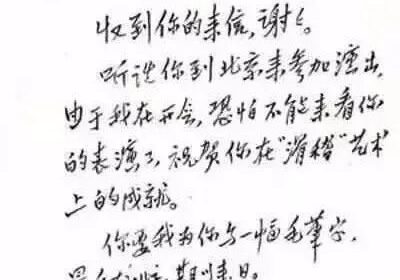 收到你的来信，谢々。
听说你到北京来参加演出，
由于我在开会，恐怕不能来看你
的表演了，祝贺你在“滑稽”艺术
上的成就。
你要我为你写一幅毛筆字，
期以来日。